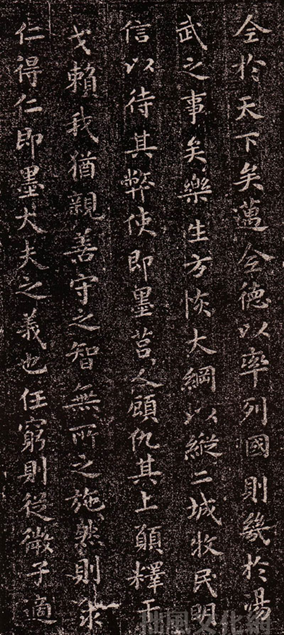 全於天下矣邁全德以率列國則幾於湯
武之事矣樂生方恢大綱以縱二城收民明
信以待其弊使即墨莒人顧仇其上願釋干
戈賴我猶親善守之智無所之施然則求
仁得仁即墨大夫之義也任窮則從微子適